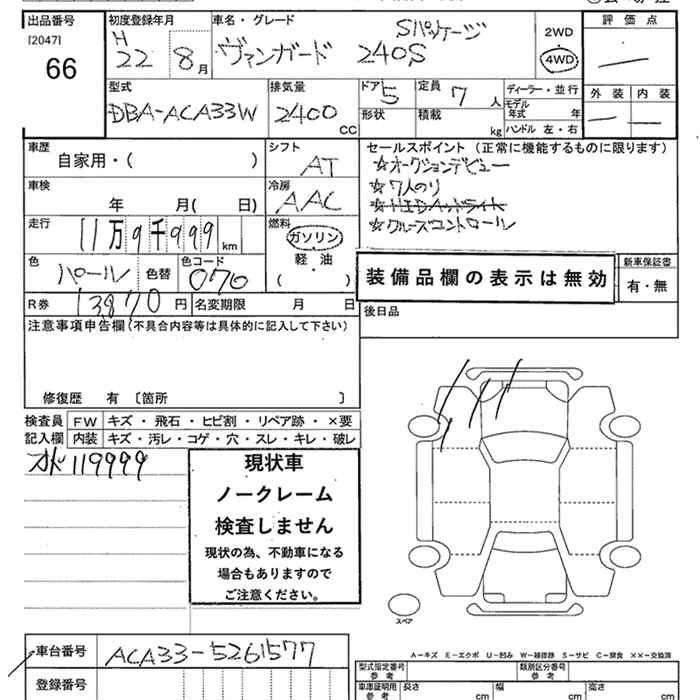 出品番号 初度登録年月 車名・グレード 評価点
[2047] H Sパッケージ 2WD
66 22 8月 ヴァンガード 240S 4WD
型式 排気量 ドア 定員 ディーラー・並行 外装 内装
DBA-ACA33W 2400 CC 5 7人 モデル年式 年
形状 積載 kg ハンドル 左・右
車歴 シフト セールスポイント（正常に機能するものに限ります）
自家用・( ) AT ☆オークションデビュー
車検 冷房 ☆7人のり
年 月( 日) AAC ☆HIDヘッドライト
走行 燃料 ☆クルーズコントロール
11万9千999km ガソリン
色 色替 色コード 軽・油
パール 070 ( )
装備品欄の表示は無効
新車保証書
有・無
R券 13870円 名変期限 月 日 後日品
注意事項申告欄(不具合内容等は具体的に記入して下さい)
修復歴 有 〔箇所 〕
検査員 FW キズ・飛石・ヒビ割・リペア跡・×要
記入欄 内装 キズ・汚レ・コゲ・穴・スレ・キレ・破レ
オド119999
現状車
ノークレーム
検査しません
現状の為、不動車になる
場合もありますので
ご注意ください。
スペア
A－キズ E－エクボ U－凹み W－補修跡 S－サビ C－腐食 ××－交換済
車台番号 ACA33-5261577
型式指定番号 参考 類別区分番号 参考
登録番号 車庫証明用 参考 長さ cm 幅 cm 高さ cm